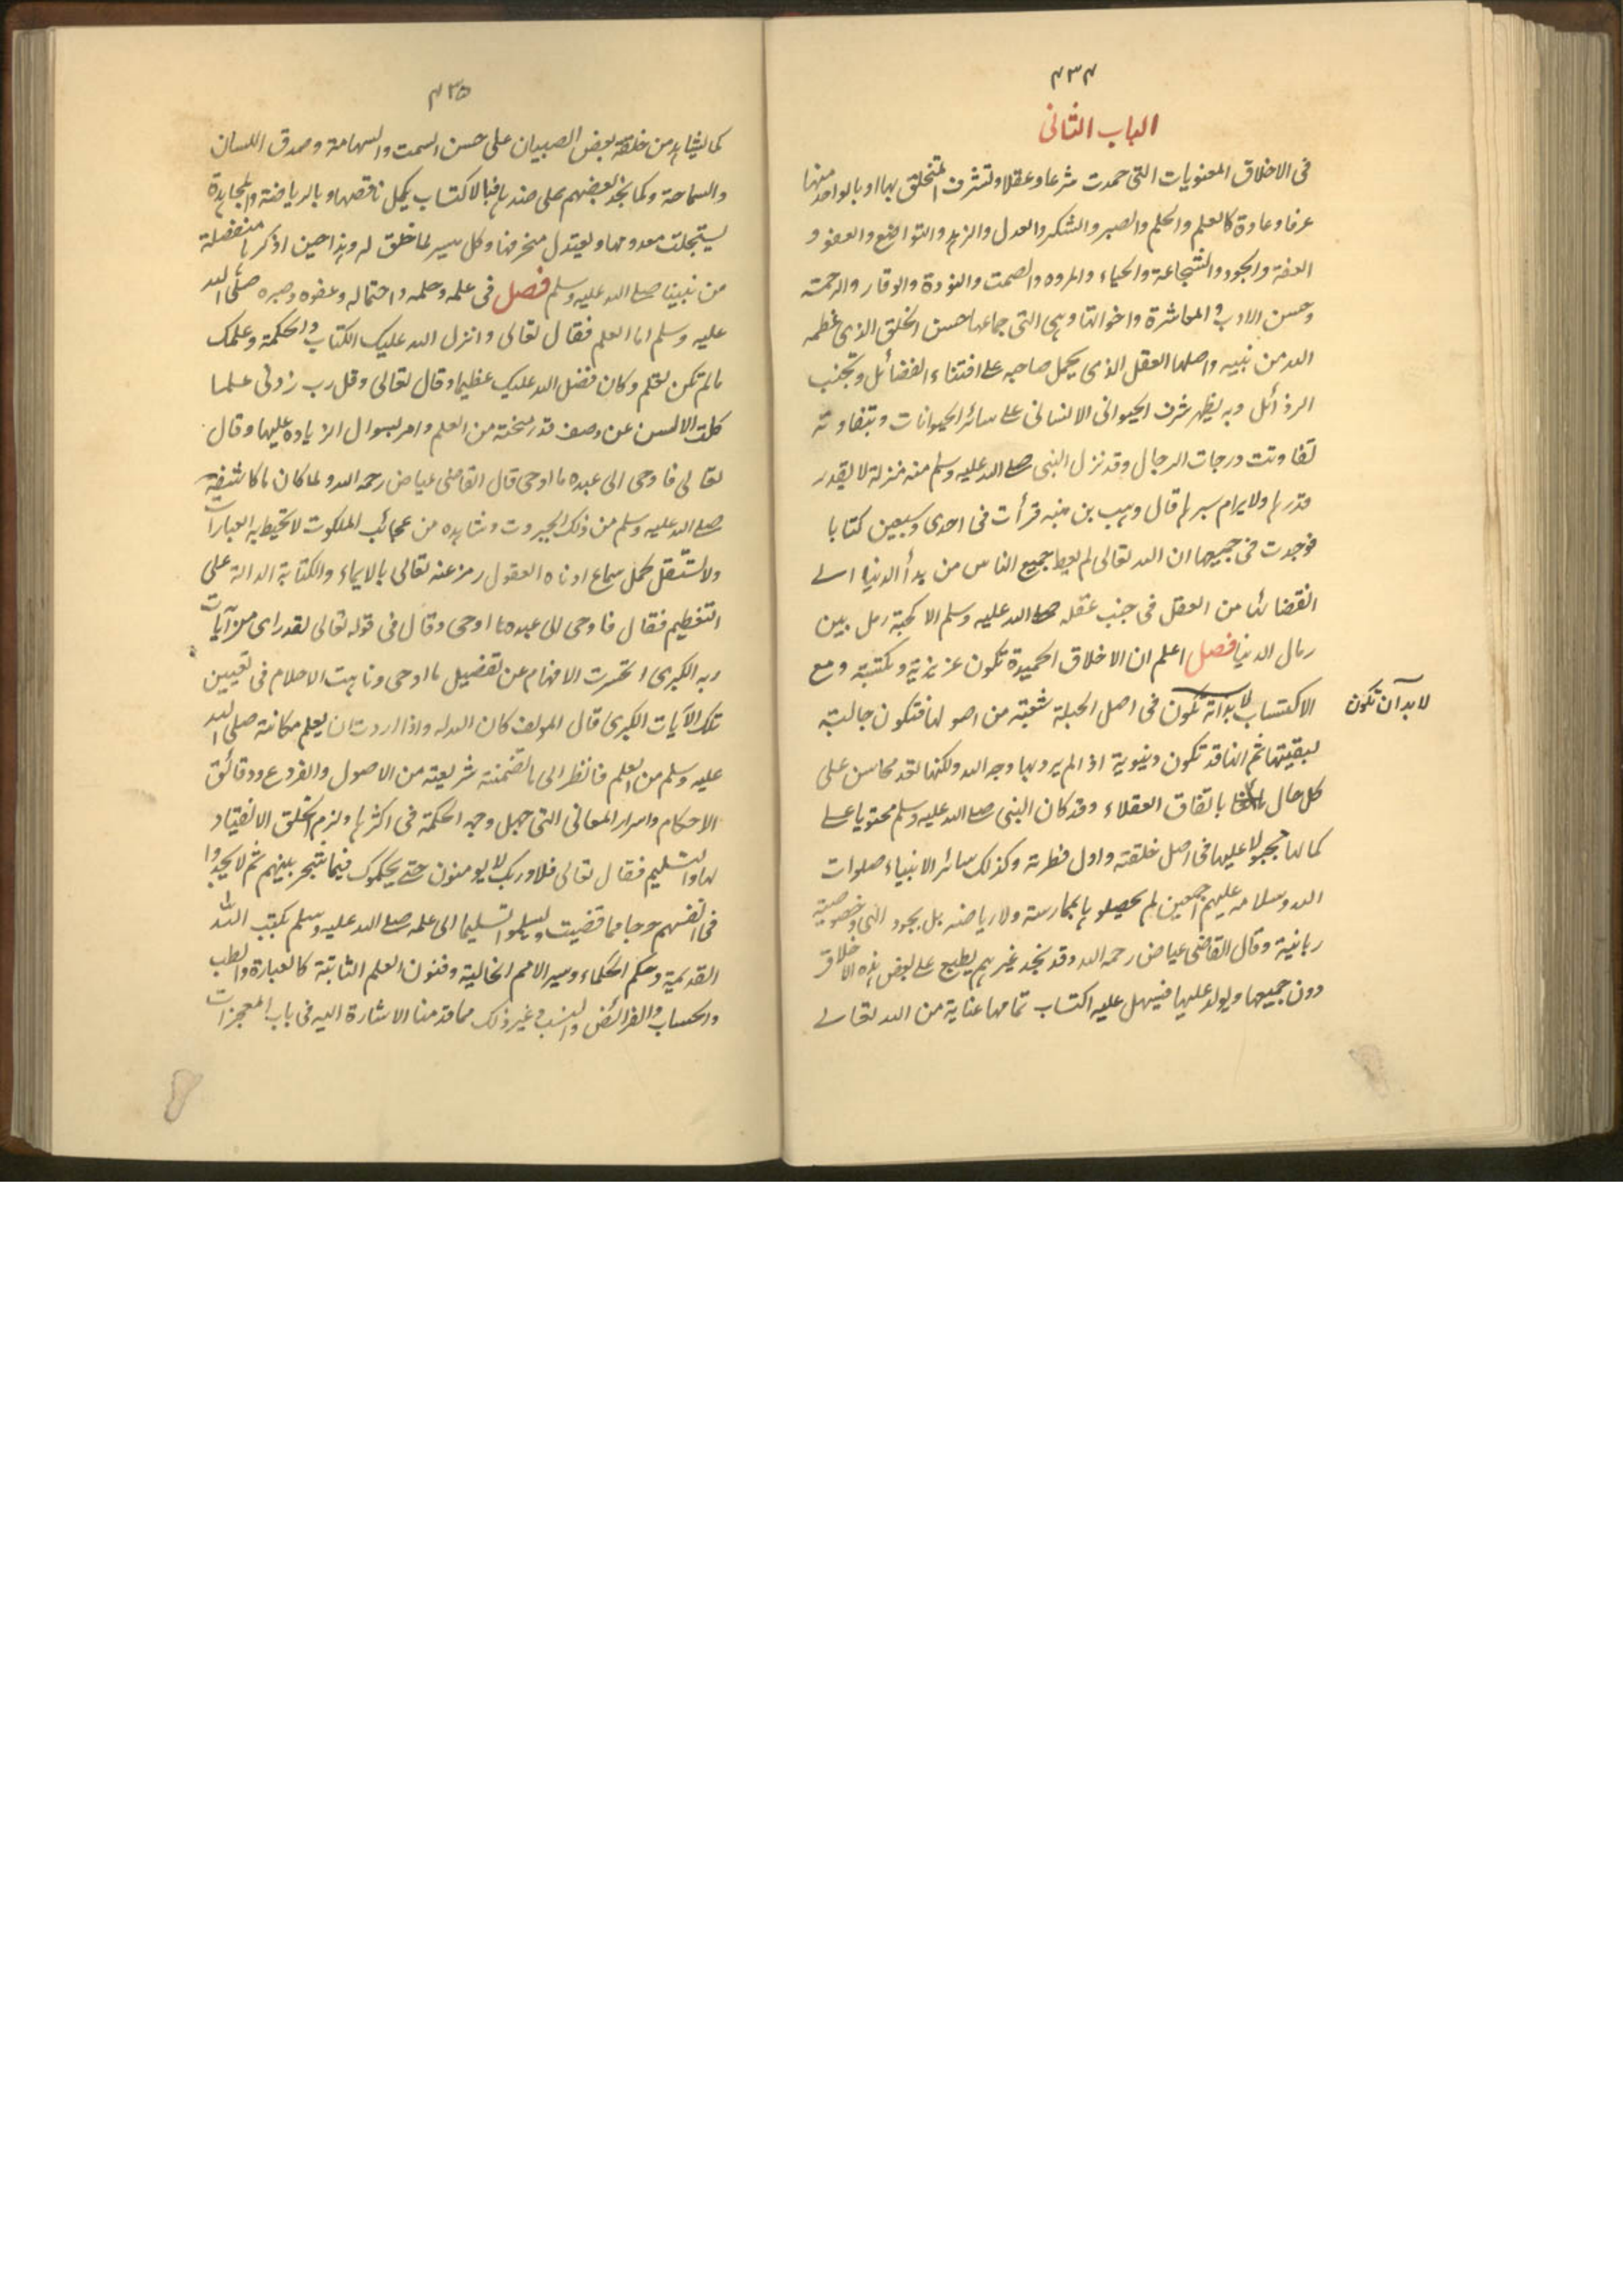 ٤٣٤
الباب الثانى
فى الاخلاق المعنويات التى حمدت شرعا وعقلا وتشرف المتخلق بها او بالواحد منها
عرفا وعادة كالعلم والحلم والصبر والشكر والعدل والزهد والتواضع والعفو و
العفة والجود والشجاعة والحياء والمروه والصمت والتؤدة والوقار والرحمة
وحسن الادب والمعاشرة واخواتها وهى التى جماعها حسن الخلق الذى عظمه
الله من نبيه واصلها العقل الذى يحمل صاحبه على اقتفاء الفضائل وتجنب
الرذائل وبه يظهر شرف الحيوانى الانسانى على سائر الحيوانات وبتفاوته
تفاوتت درجات الرجال وقد نزل النبى صلى الله عليه وسلم منه منزلة لا يقدر
قدرها ولا يرام سبرها قال وهب بن منبه قرأت فى احدى وسبعين كتابا
فوجدت فى جميعها ان الله تعالى لم يعط جميع الناس من بدأ الدنيا الى
انقضائها من العقل فى جنب عقله صلى الله عليه وسلم الا كحبة رمل بين
رمال الدنيا فصل اعلم ان الاخلاق الحميدة تكون غريزية ومكتسبة ومع
الاكتساب لا بد انه تكون فى اصل الجبلة شعبة من اصولها فتكون جالبة
لا بد آن تكون
لبقيتها ثم انها قد تكون دنيوية اذا لم يرد بها وجه الله ولكنها تعد محاسن على
كل حال باتفاق العقلاء وقد كان النبى صلى الله عليه وسلم محتويا على
كمالها مجبولا عليها فى اصل خلقته واول فطرته وكذلك سائر الانبياء صلوات
الله وسلامه عليهم اجمعين لم يحصلوها بممارسة ولا رياضه بل بجود الهى وخصوصية
ربانية وقال القاضى عياض رحمه الله وقد نجد غيرهم يطبع على بعض هذه الاخلاق
دون جميعها ويولد عليها فيسهل عليه اكتساب تمامها عناية من الله تعالى
٤٣٥
كما يشاهد من خلقة بعض الصبيان على حسن السمت والشهامة وصدق اللسان
والسماحة وكما نجد بعضهم على ضدها فبالاكتساب يكمل ناقصها وبالرياضة والمجاهدة
يستجلب معدومها ويعتدل منحرفها وكل ميسر لما خلق له وهذا حين اذكرها منفصلة
من نبينا صلى الله عليه وسلم فصل فى علمه وحلمه واحتماله وعفوه وصبره صلى الله
عليه وسلم اما العلم فقال تعالى وانزل الله عليك الكتاب والحكمة وعلمك
مالم تكن تعلم وكان فضل الله عليك عظيما وقال تعالى وقل رب زدنى علما
كلت الالسن عن وصف قدر منحته من العلم وامر بسوال الزياده عليها وقال
تعالى فاوحى الى عبده ما اوحى قال القاضى عياض رحمه الله ولما كان ما كاشفه
صلى الله عليه وسلم من ذلك الجبروت وشاهده من عجائب الملكوت لا تحيط به العبارات
ولا تستقل بحمل سماع ادناه العقول رمز عنه تعالى بالايماء والكتابة الدالة على
التعظيم فقال فاوحى الى عبده ما اوحى وقال فى قوله تعالى لقد راى من آيات
ربه الكبرى انحسرت الافهام عن تفصيل ما اوحى وتاهت الاحلام فى تعيين
تلك الآيات الكبرى قال المولف كان الله له واذا اردت ان يعلم مكانته صلى الله
عليه وسلم من العلم فانظر الى ما تضمنته شريعته من الاصول والفروع ودقائق
الاحكام واسرار المعانى التى جهل وجه الحكمة فى اكثرها ولزم الخلق الانقياد
لها والتسليم فقال تعالى فلا وربك لا يومنون حتى يحكموك فيما شجر بينهم ثم لا يجدوا
فى انفسهم حرجا مما قضيت ويسلموا تسليما الى علمه صلى الله عليه وسلم بكتب الله
القديمة وحكم الحكماء وسير الامم الخالية وفنون العلم الثابتة كالعبارة والطب
والحساب والفرائض والنسب وغير ذلك مما قدمنا الاشارة اليه فى باب المعجزات